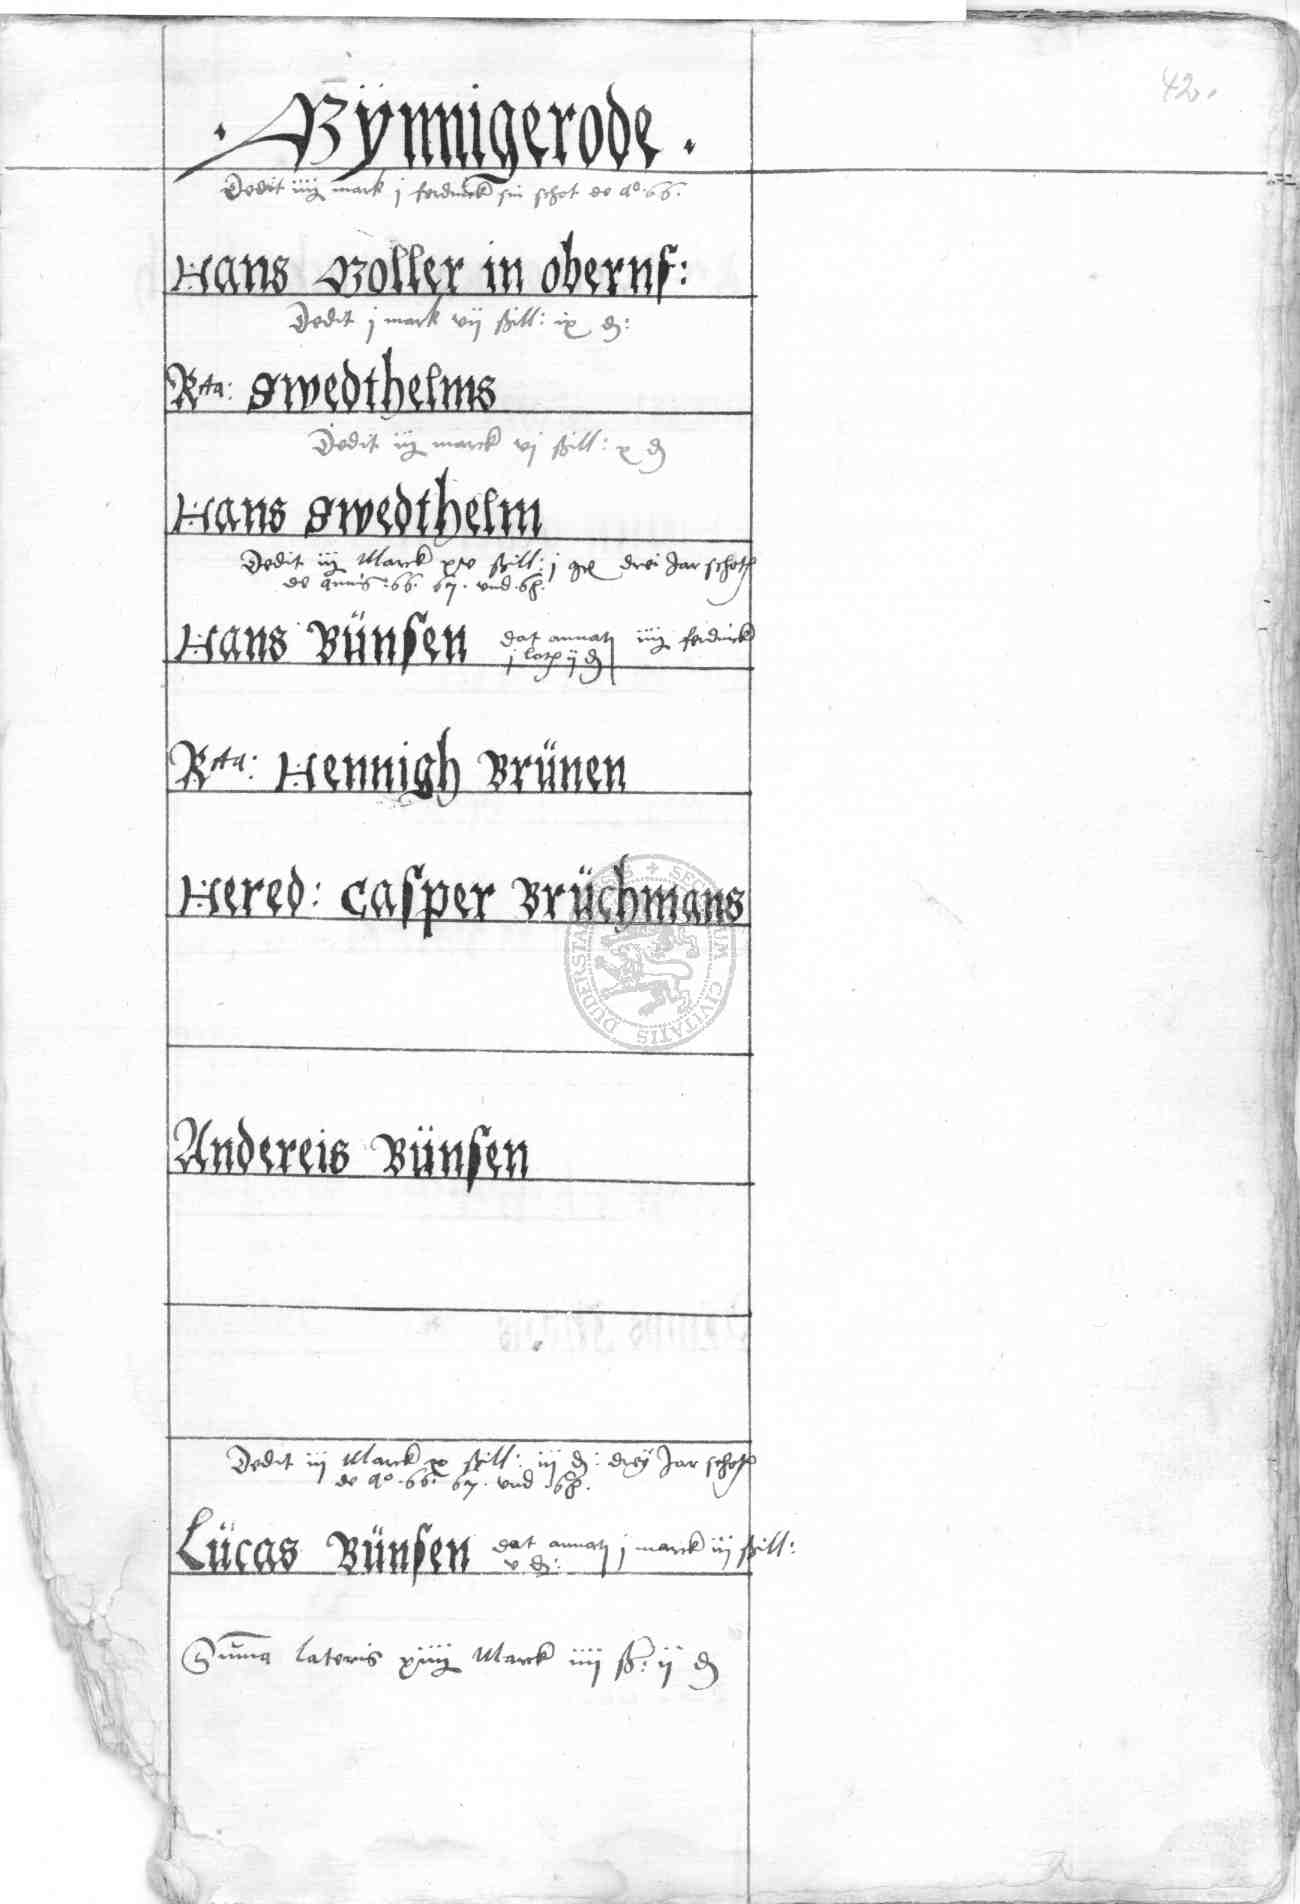 42.
. Bÿnnigerode .
Dedit iiij mark j ferdinck sin schot de ao. 66.
Hans Boller in obernf:
Dedit j mark vij ßill: ix ₰:
Rta: Swedthelms
Dedit iij marck vj ßill: x ₰
Hans Swedthelm
Dedit iij Marck xv ßill: j drei Jar schot
de annis .66. 67. vnd .68.
Hans Bünsen dat iiij ferdinck
j lot ij ₰
Rta: Hennigh Brünen
Hered: Casper Brüchmans
SECRETUM CIVITATIS DUDERSTA
Andereis Bünsen
Dedit iij Marck x ßill: iij ₰: dreÿ Jar schot
de ao .66. 67. vnd .68.
Lücas Bünsen dat j marck iij ßill:
v ₰:
Suma lateris xiiij Marck iiij ß: ij ₰